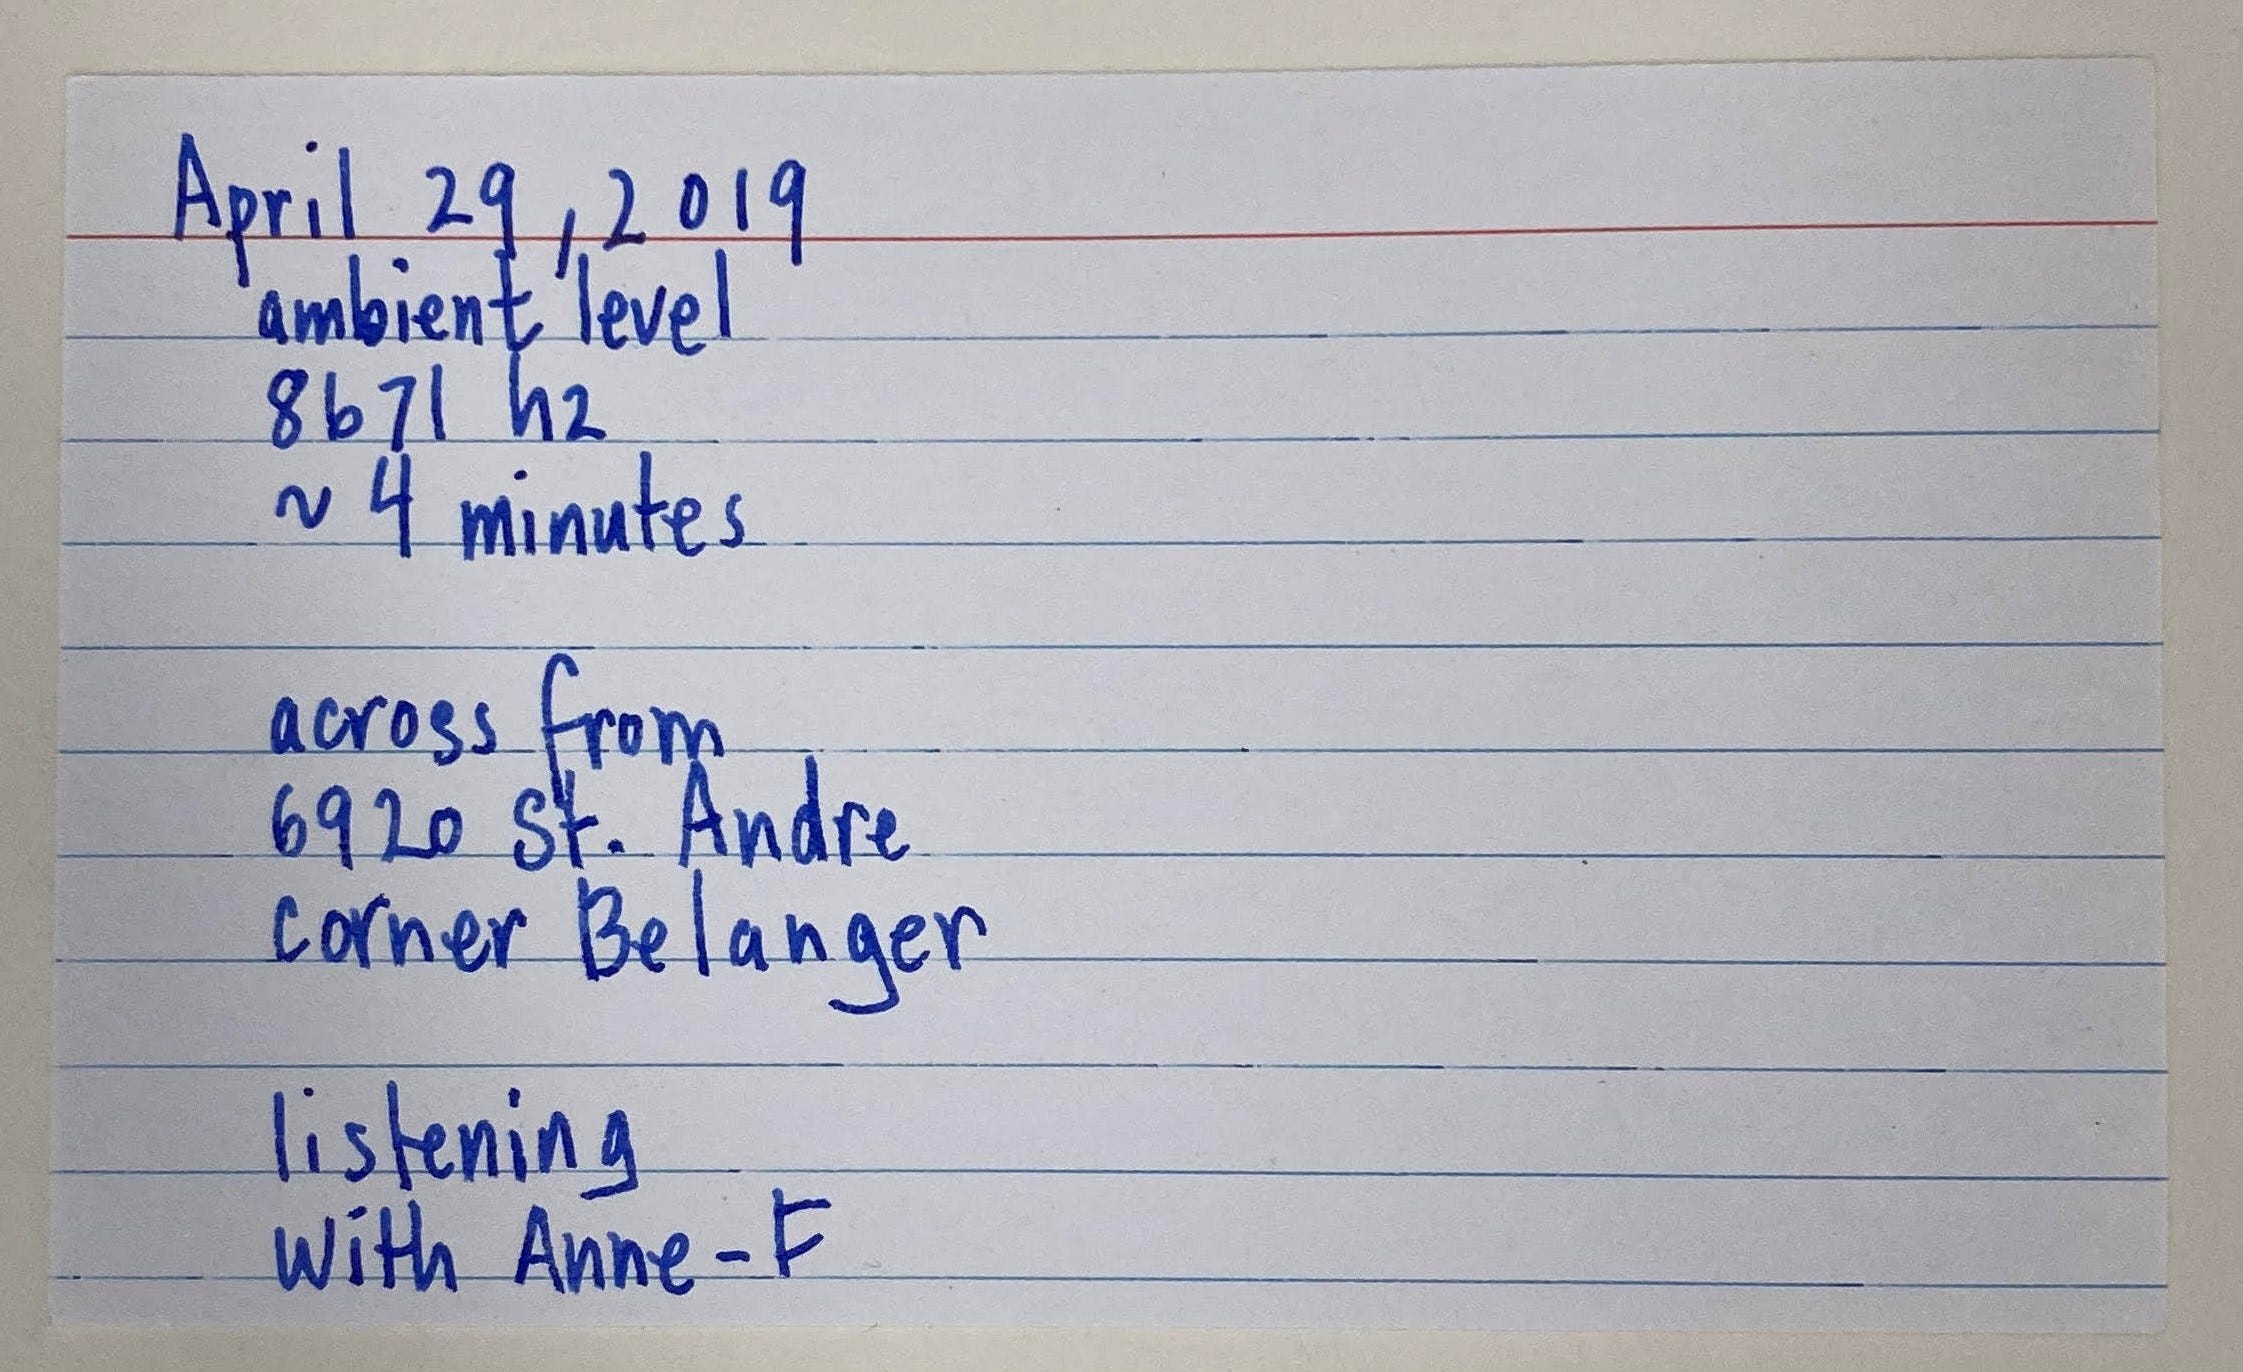 April 29, 2019
ambient level
8671 hz
~ 4 minutes
across from
6920 St. Andre
corner Belanger
listening
with Anne-F